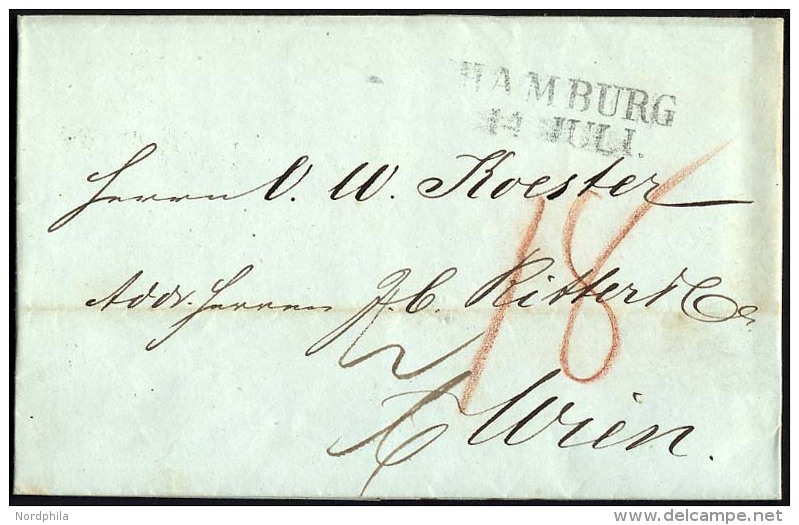 HAMBURG
14 JULI.
Herrn O. W. Koester
18
Addr. Herren J. C. Ritter & Co.
Wien.
Nordphila
delcampe.net